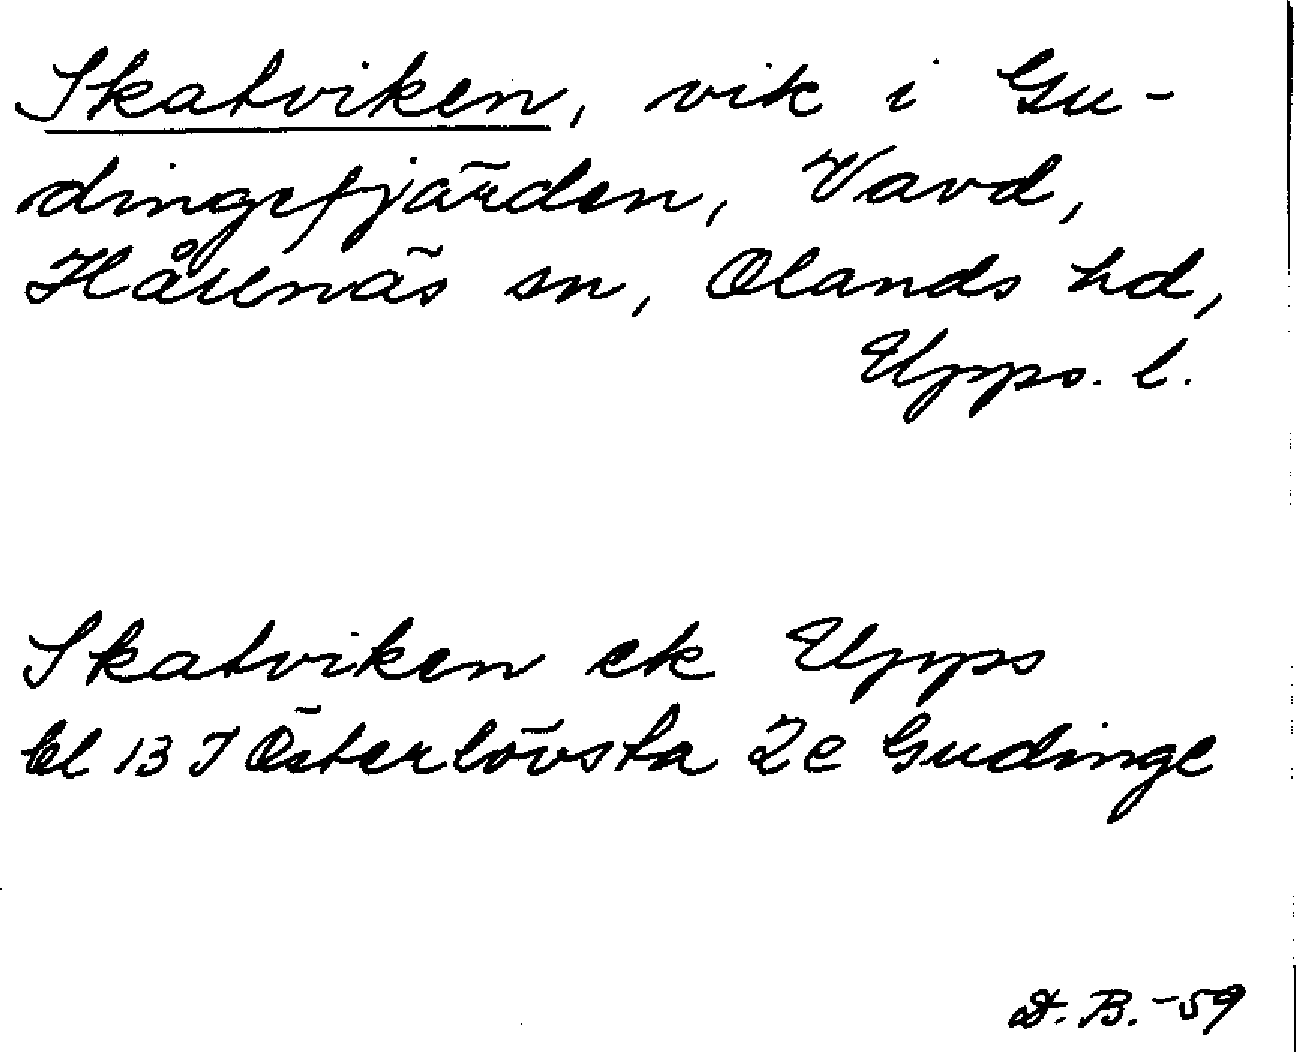 Skatviken, vik i Gu-
dingefjärden, Vavd,
Hållnäs sn, Olands hd,
Upps. l.
Skatviken ek Upps
bl 13 I Österlövsta 2e Gudinge
D. B. -59